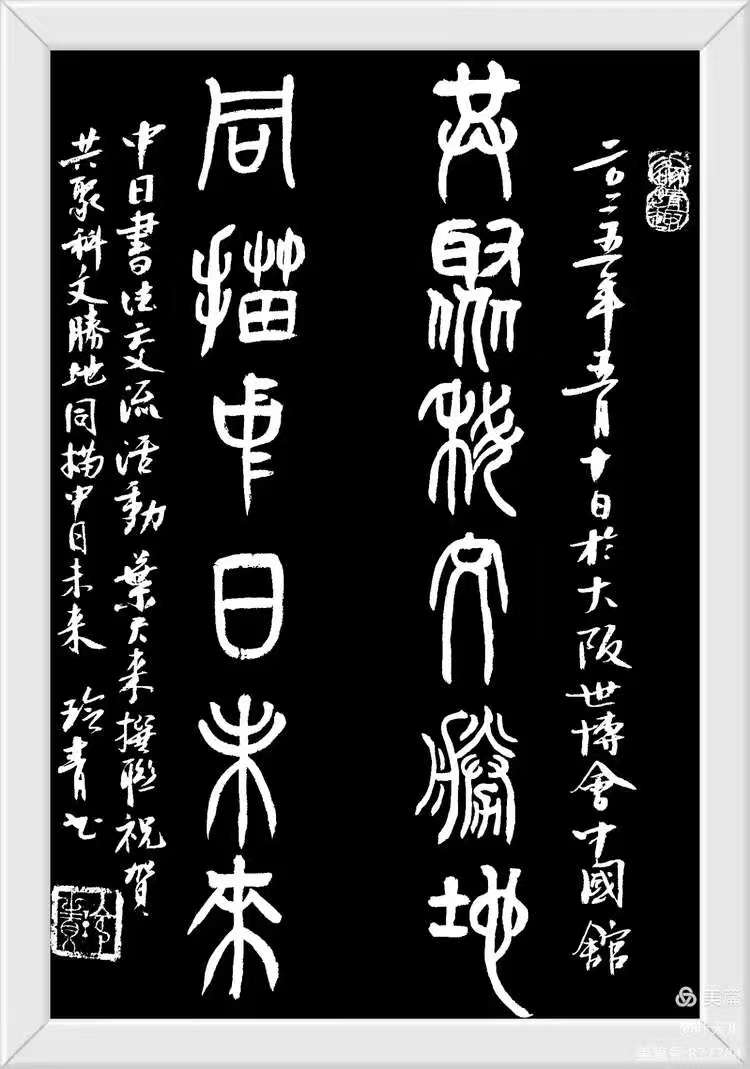 二〇二五年五月十日於大阪世博會中國館
共聚科文勝地
同描中日未來
中日書法交流活動葉天來撰聯祝賀
共聚科文勝地同描中日未来 玲青书
美篇